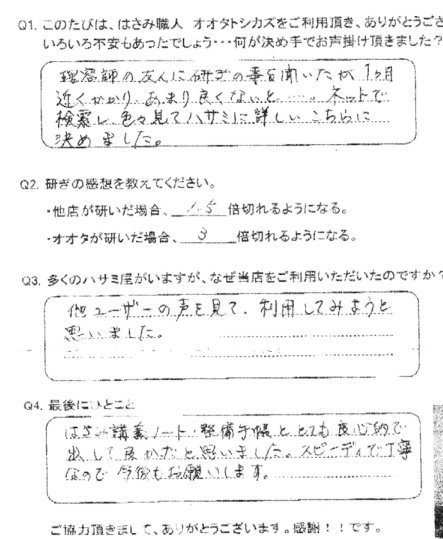 Q1. このたびは、はさみ職人 オオタトシカズをご利用頂き、ありがとうござ
いろいろ不安もあったでしょう・・・何が決め手でお声掛け頂きました?
理容師の友人に研ぎの事を聞いたが1ヶ月
近くかかり、あまり良くないと…。ネットで
検索し、色々見てハサミに詳しいこちらに
決めました。
Q2. 研ぎの感想を教えてください。
・他店が研いだ場合、1.5倍切れるようになる。
・オオタが研いだ場合、3倍切れるようになる。
Q3. 多くのハサミ屋がいますが、なぜ当店をご利用いただいたのですか?
他ユーザーの声を見て、利用してみようと
思いました。
Q4. 最後にひとこと
はさみ講義ノート・整備手帳ととても良心的で
出して良かったと思いました。スピーディで丁寧
なので今後もお願いします。
ご協力頂きまして、ありがとうございます。感謝!!です。